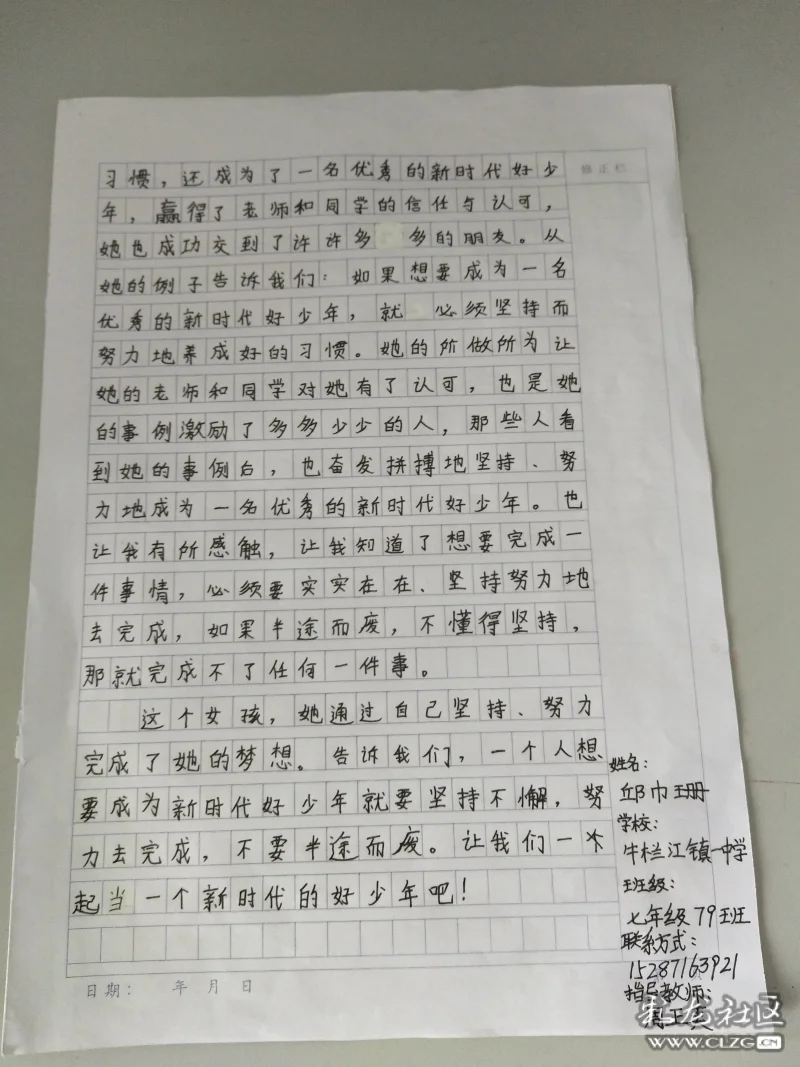 习惯，还成为了一名优秀的新时代好少
修正栏
年，赢得了老师和同学的信任与认可，
她也成功交到了许许多多的朋友。从
她的例子告诉我们：如果想要成为一名
优秀的新时代好少年，就必须坚持而
努力地养成好的习惯。她的所做所为让
她的老师和同学对她有了认可，也是她
的事例激励了多多少少的人，那些人看
到她的事例后，也奋发拼搏地坚持、努
力地成为一名优秀的新时代好少年。也
让我有所感触，让我知道了想要完成一
件事情，必须要实实在在、坚持努力地
去完成，如果半途而废，不懂得坚持，
那就完成不了任何一件事。
这个女孩，她通过自己坚持、努力
完成了她的梦想。告诉我们，一个人想
要成为新时代好少年就要坚持不懈，努
力去完成，不要半途而废。让我们一
起当一个新时代的好少年吧！
姓名：
邱巾珊
学校：
牛栏江镇一中学
班级：
七年级79班
联系方式：
15287163921
指导教师：
日期： 年 月 日
社区
WWW.CLZG.CN